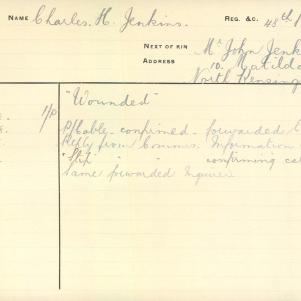 NAME Charles. H. Jenkins. REG. &C. 48th/
NEXT OF KIN Mr John Jenk
ADDRESS 10. Matilda
North Kensing
"Wounded"
P/Cable confirmed forwarded
Reply from Commrs. Information
" " confirming ca
Same forwarded Inquirer